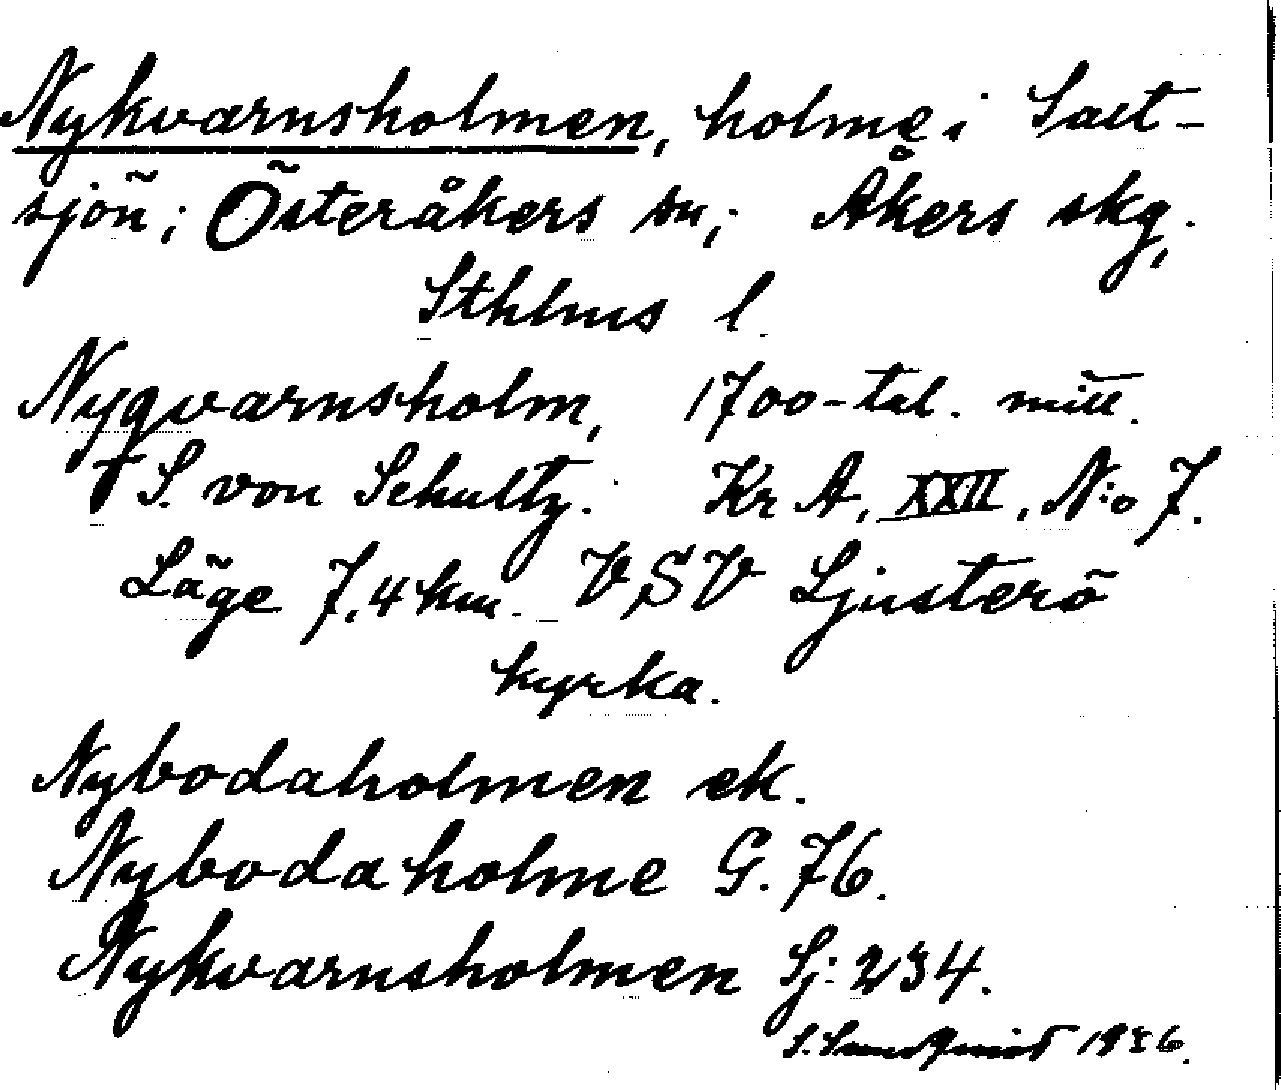 Nykvarnsholmen, holme i Salt-
sjön; Österåkers sn; Åkers skg,
Sthlms l.
Nyqvarnsholm, 1700-tal. mitt.
J S. von Schultz. Kr A, XXII, N:o 7.
Läge 7,4 km. VSV Ljusterö
kyrka.
Nybodaholmen ek.
Nybodaholme G. 76.
Nykvarnsholmen Sj: 234.
S. Sundqvist 1936.